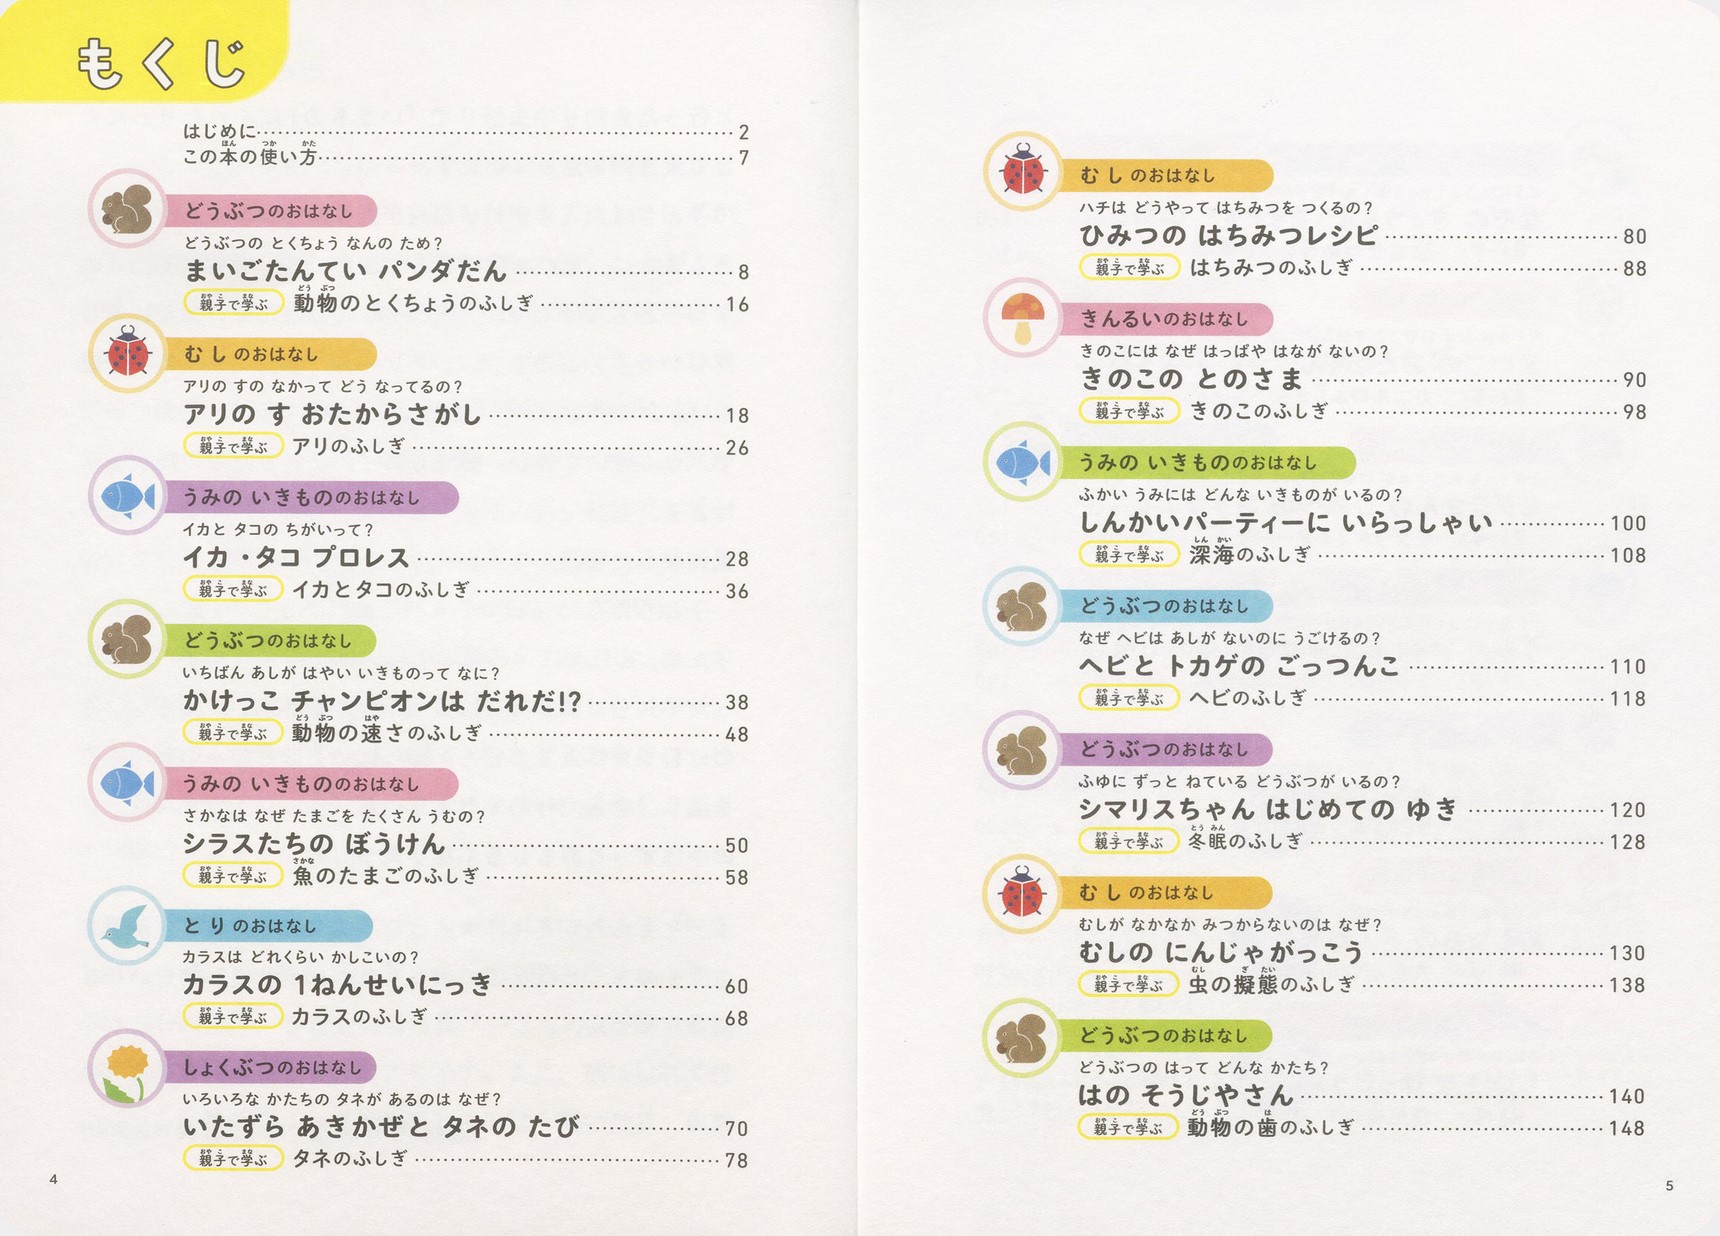 もくじ
はじめに 2
この本の使い方 7
どうぶつのおはなし
どうぶつの とくちょう なんの ため？
まいごたんてい パンダだん 8
親子で学ぶ 動物のとくちょうのふしぎ 16
むしのおはなし
アリの すの なかって どう なってるの？
アリの す おたからさがし 18
親子で学ぶ アリのふしぎ 26
うみの いきもののおはなし
イカと タコの ちがいって？
イカ・タコ プロレス 28
親子で学ぶ イカとタコのふしぎ 36
どうぶつのおはなし
いちばん あしが はやい いきものって なに？
かけっこ チャンピオンは だれだ!? 38
親子で学ぶ 動物の速さのふしぎ 48
うみの いきもののおはなし
さかなは なぜ たまごを たくさん うむの？
シラスたちの ぼうけん 50
親子で学ぶ 魚のたまごのふしぎ 58
とりのおはなし
カラスは どれくらい かしこいの？
カラスの 1ねんせいにっき 60
親子で学ぶ カラスのふしぎ 68
しょくぶつのおはなし
いろいろな かたちの タネが あるのは なぜ？
いたずら あきかぜと タネの たび 70
親子で学ぶ タネのふしぎ 78
4
むしのおはなし
ハチは どうやって はちみつを つくるの？
ひみつの はちみつレシピ 80
親子で学ぶ はちみつのふしぎ 88
きんるいのおはなし
きのこには なぜ はっぱや はなが ないの？
きのこの とのさま 90
親子で学ぶ きのこのふしぎ 98
うみの いきもののおはなし
ふかい うみには どんな いきものが いるの？
しんかいパーティーに いらっしゃい 100
親子で学ぶ 深海のふしぎ 108
どうぶつのおはなし
なぜ ヘビは あしが ないのに うごけるの？
ヘビと トカゲの ごっつんこ 110
親子で学ぶ ヘビのふしぎ 118
どうぶつのおはなし
ふゆに ずっと ねている どうぶつが いるの？
シマリスちゃん はじめての ゆき 120
親子で学ぶ 冬眠のふしぎ 128
むしのおはなし
むしが なかなか みつからないのは なぜ？
むしの にんじゃがっこう 130
親子で学ぶ 虫の擬態のふしぎ 138
どうぶつのおはなし
どうぶつの はって どんな かたち？
はの そうじやさん 140
親子で学ぶ 動物の歯のふしぎ 148
5